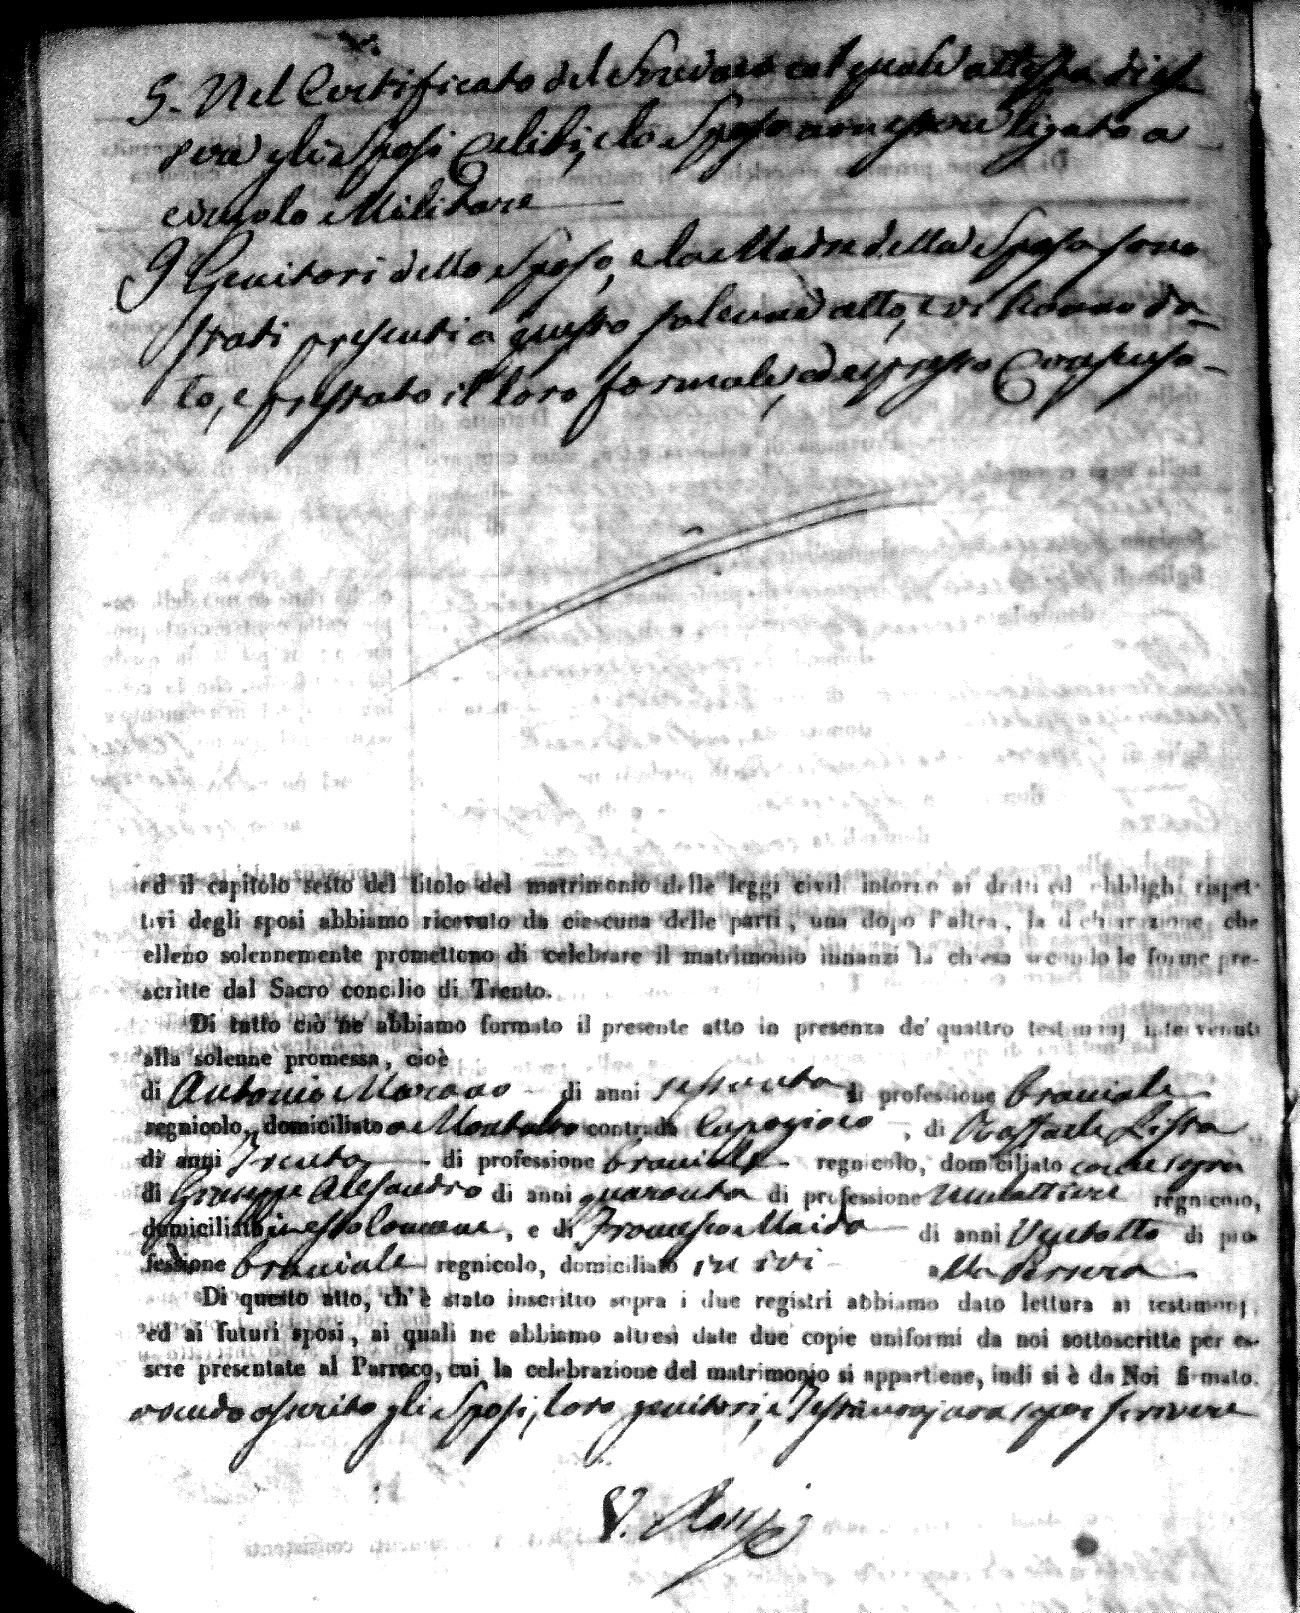 5. Nel Certificato del Sindaco col quale attesta di es
sere gli Sposi Celibi, e lo Sposo non essere ligato a
vincolo Militare
I Genitori dello Sposo, e la Madre della Sposa sono
stati presenti a questo solenne atto, e vi hanno da-
to, e prestato il loro formale, ed espresso Consenso-
ed il capitolo sesto del titolo del matrimonio delle leggi civili intorno ai dritti ed obblighi rispet-
tivi degli sposi abbiamo ricevuto da ciascuna delle parti, una dopo l'altra, la dichiarazione, che
elleno solennemente promettono di celebrare il matrimonio innanzi la chiesa secondo le forme pre-
scritte dal Sacro concilio di Trento.
Di tutto ciò ne abbiamo formato il presente atto in presenza de' quattro testimonj intervenuti
alla solenne promessa, cioè
di Antonio Morano di anni sessanta di professione braciale
regnicolo, domiciliato a Montalto contrada Lupogioio, di Raffaele Lissa
di anni Trenta di professione braciale regnicolo, domiciliato come sopra
di Giuseppe Alesandro di anni quaranta di professione Mulattiere regnicolo,
domiciliato in esso Comune, e di Francesco Maida di anni Ventotto di pro
fessione braciale regnicolo, domiciliato in ivi alla
Di questo atto, ch'è stato inscritto sopra i due registri abbiamo dato lettura ai testimonj,
ed ai futuri sposi, ai quali ne abbiamo altresì date due copie uniformi da noi sottoscritte per es-
sere presentate al Parroco, cui la celebrazione del matrimonio si appartiene, indi si è da Noi firmato.
avendo asserito gli Sposi, loro genitori, e Testimonj non saper scrivere